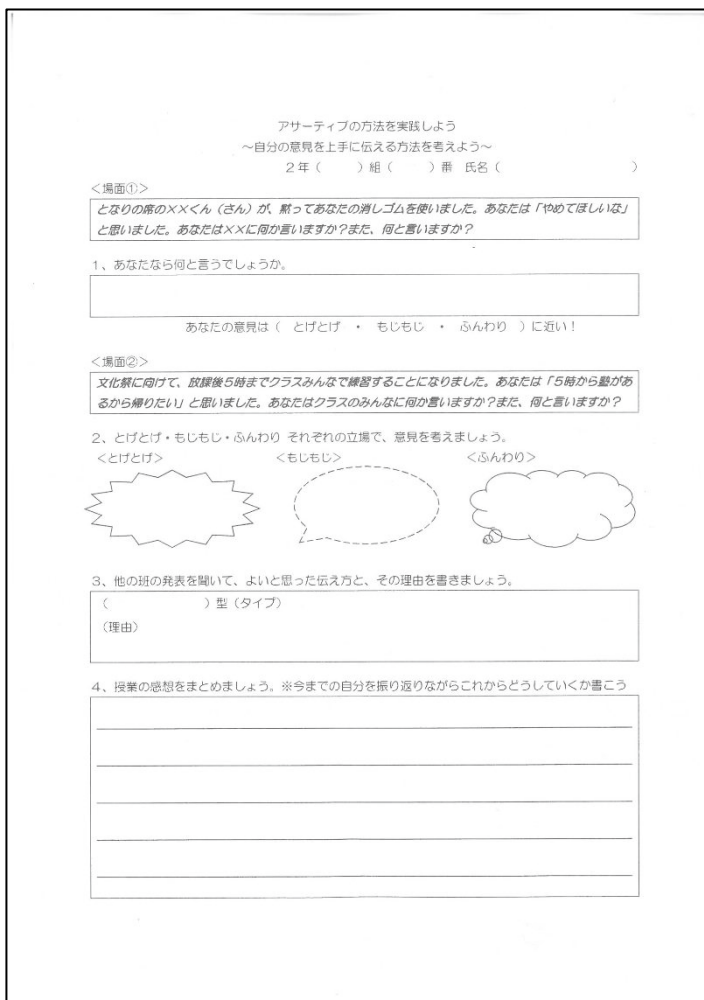 アサーティブの方法を実践しよう
～自分の意見を上手に伝える方法を考えよう～
２年（　　　）組（　　　）番　氏名（　　　　　　　　　　　）
＜場面①＞
となりの席の××くん（さん）が、黙ってあなたの消しゴムを使いました。あなたは「やめてほしいな」
と思いました。あなたは××に何か言いますか？また、何と言いますか？
１、あなたなら何と言うでしょうか。
あなたの意見は（　とげとげ　・　もじもじ　・　ふんわり　）に近い！
＜場面②＞
文化祭に向けて、放課後５時までクラスみんなで練習することになりました。あなたは「５時から塾があ
るから帰りたい」と思いました。あなたはクラスのみんなに何か言いますか？また、何と言いますか？
２、とげとげ・もじもじ・ふんわり それぞれの立場で、意見を考えましょう。
＜とげとげ＞　　＜もじもじ＞　　＜ふんわり＞
３、他の班の発表を聞いて、よいと思った伝え方と、その理由を書きましょう。
（　　　　　　　　）型（タイプ）
（理由）
４、授業の感想をまとめましょう。※今までの自分を振り返りながらこれからどうしていくか書こう